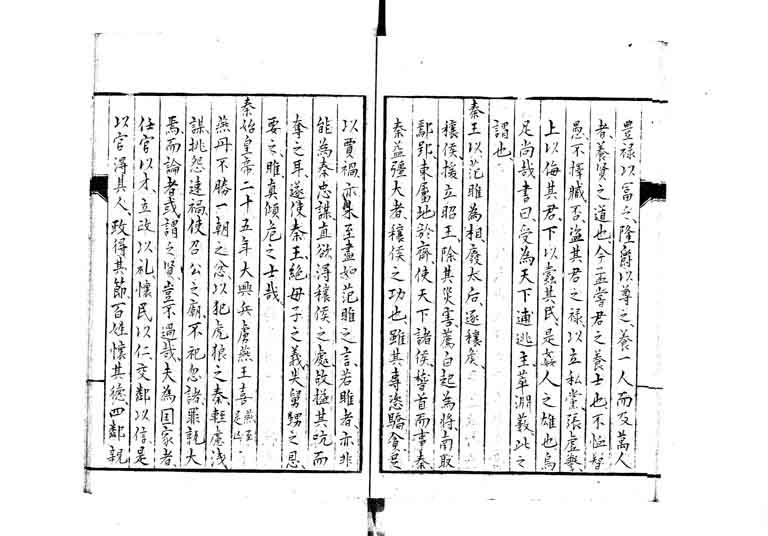 豊禄以富之、隆爵以尊之、養一人而及萬人
者養賢之道也、今孟嘗君之養士也、不恤智
愚不擇臧否、盗其君之禄、以立私党、張虚譽
上以侮其君、下以蠹其民、是姦人之雄也、烏
足尚哉、書曰、受為天下逋逃主、萃淵薮、此之
謂也、
秦王以范雎為相、廢太后、逐穰矦、
穰侯援立昭王、除其災害、薦白起為将、南取
鄢郢、東屬地於齊、使天下諸侯稽首而事秦、
秦益彊大者、穰侯之功也、雖其専恣驕貪足
以賈禍、亦未至盡如范雎之言、若雎者、亦非
能為秦忠謀、直欲得穰侯之處、故搤其吭而
奪之耳、遂使秦王絶母子之義、失舅甥之恩、
要之、雎真傾危之士哉、
秦始皇帝二十五年大興兵虜燕王喜
燕丹不勝一朝之忿、以犯虎狼之秦、軽慮浅
謀、挑怨速禍、使召公之廟、不祀忽諸、罪孰大
焉、而論者或謂之賢、豈不過哉、夫為国家者、
任官以才、立政以礼、懷民以仁、交鄰以信、是
以官得其人、政得其節、百姓懷其德、四鄰親